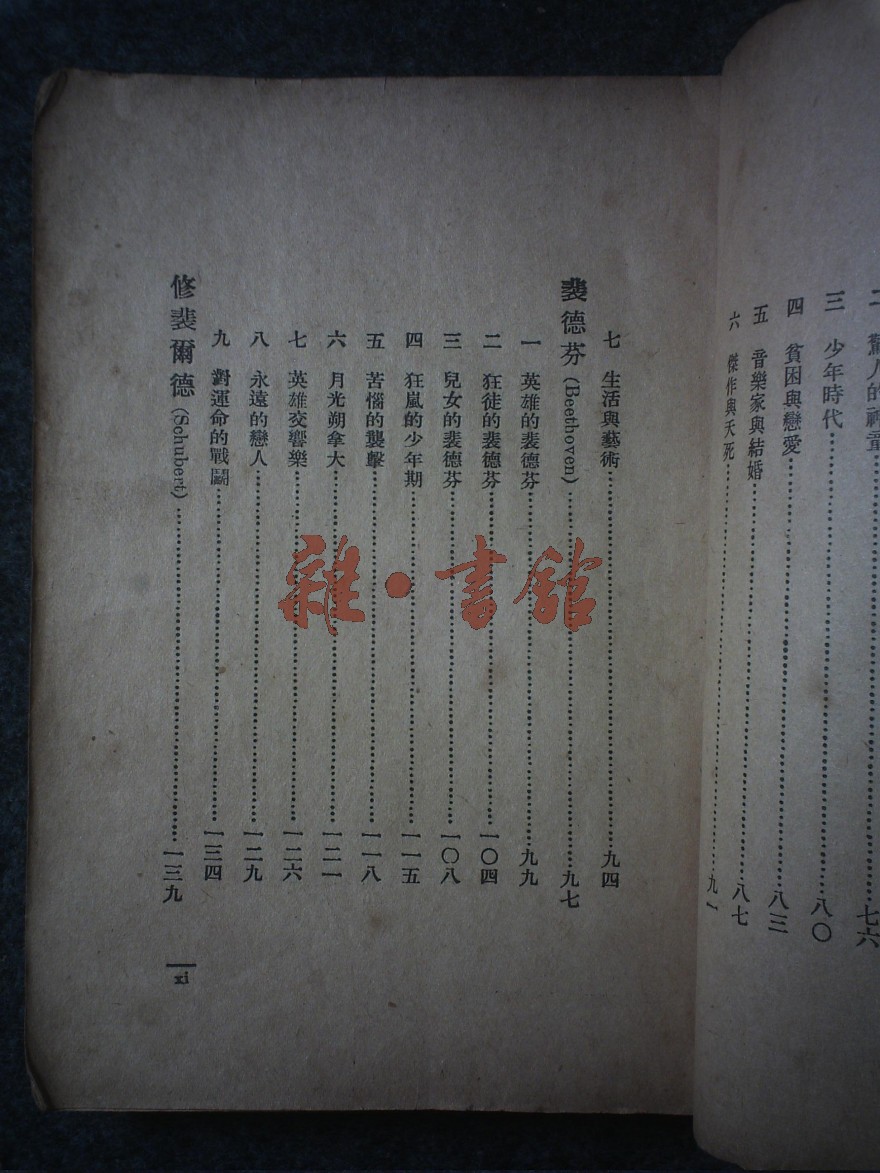 二 驚人的神童……七六
三 少年時代……八〇
四 貧困與戀愛……八三
五 音樂家與結婚……八七
六 傑作與夭死……九一
七 生活與藝術……九四
裴德芬 (Beethoven)……九七
一 英雄的裴德芬……九九
二 狂徒的裴德芬……一〇四
三 兒女的裴德芬……一〇八
四 狂嵐的少年期……一一五
五 苦惱的襲擊……一一八
六 月光朔拿大……一二一
七 英雄交響樂……一二六
八 永遠的戀人……一二九
九 對運命的戰鬭……一三四
修裴爾德 (Schubert)……一三九
xi
雜·書館